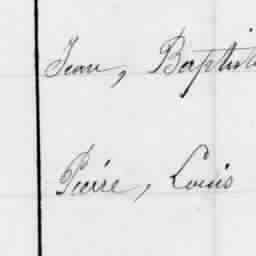 Jean, Baptiste
Pierre, Louis